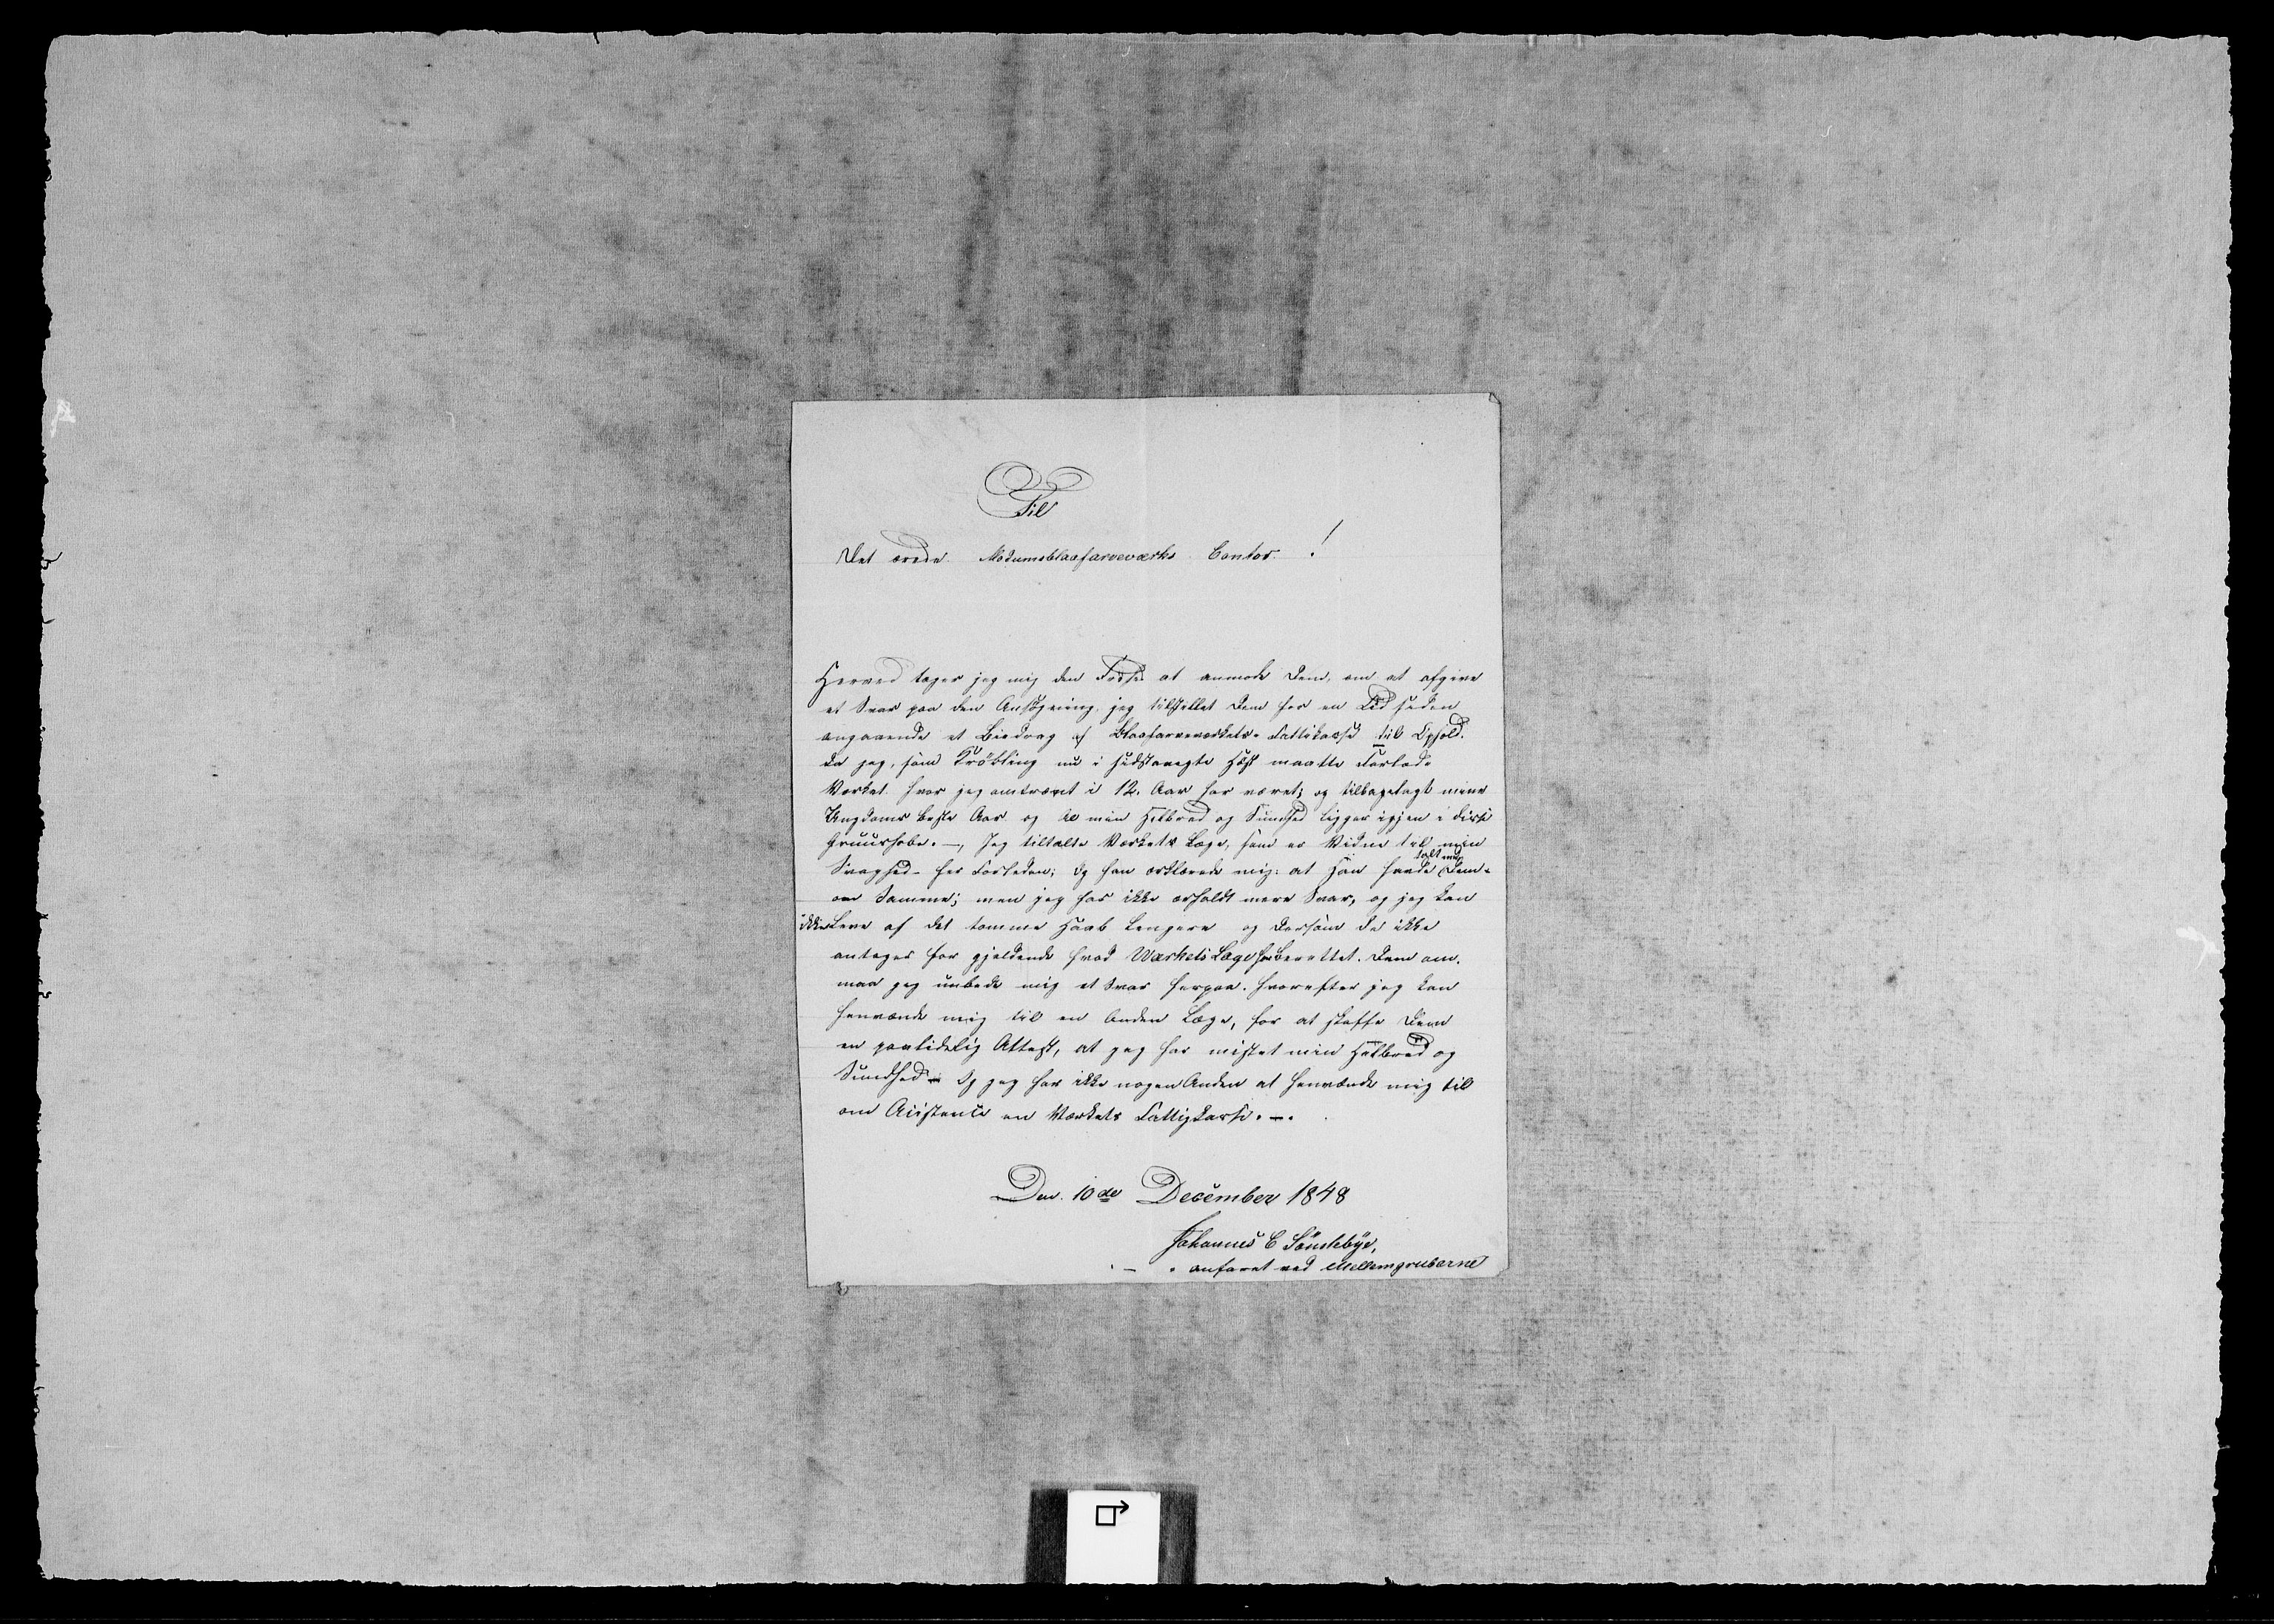 Til
Det ærede Modumsblaafarveværks Contor. !
Herved tager jeg mig den at anmode Dem, om at afgive
et Svar paa den Ansøgning, jeg tilstillet Dem for en Tid siden
angaaende et Biedrag af Blaafarveværkets Fattikasse til Ophold.
da jeg, som Krøbling nu i sidstavegte Høst maatte Forlade
Værket hvor jeg omtrænt i 12. Aar har været; og tilbagelagt mine
Ungdoms beste Aar og Al min Helbred og Sundhed ligger igjen i disse
Gruurhobe. —, Jeg tiltalte Værkets Læge, som er Vidne til min
Svaghed - her Forleden; Og han erklærede mig: at Han havde talt med Dem
om Samme; men jeg har ikke erholdt mere Svar, og jeg kan
ikke Leve af det tomme Haab Lengere og dersom de ikke
antages for gjeldende hvad Værkets Læge har Berettet. Dem om.
maa jeg uubede mig et Svar herpaa. hvorefter jeg kan
henvænde mig til en Anden Læge, for at skaffe Dem
en paalidelig Attest, at jeg har mistet min Helbred og
Sundhed - Og jeg har ikke nogen Anden at henvænde mig til
om Acistence en Værkets Fattigkasse. —.
Den. 10de December 1848
Johannes C Sønstebye,
anfaret ved Mellemgruberne